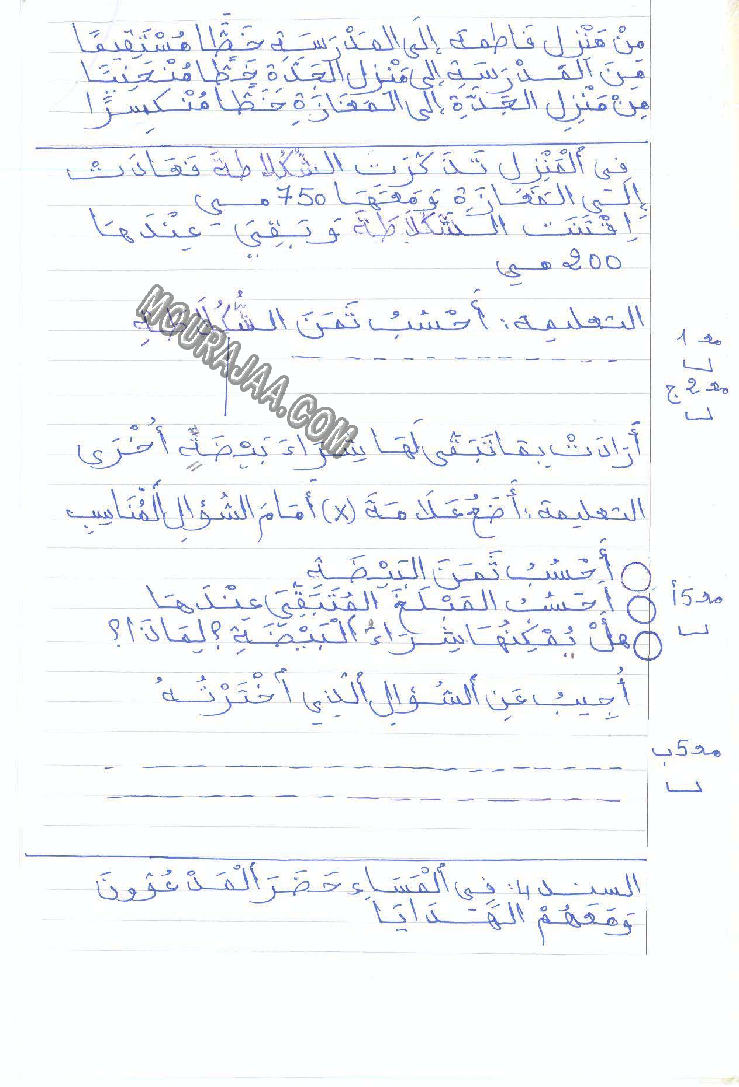 مِنْ مَنْزِلِ فَاطِمَة إِلَى المَدْرَسَةِ خَطًّا مُسْتَقِيمًا
مِنَ المَدْرَسَةِ إِلى مَنْزِلِ الجَدَّةِ خَطًّا مُنْحَنِيًا
مِنْ مَنْزِلِ الجَدَّةِ إِلى المَغَازَةِ خَطًّا مُنْكَسِرًا
فِي الْمَنْزِلِ تَذَكَّرَتْ الشُّكُلاطَةَ فَعَادَتْ
إِلَى المَغَازَةِ وَمَعَهَا 750 مي
اِقْتَنَت الشُّكُلاَطَةَ وَبَقِيَ عِنْدَهَا
200 مي
التعليمة: أَحْسُبُ ثَمَنَ الشُّكُلاَطَةِ
MOURAJAA.COM
مع 1
مع 2 ج
أَرَادَتْ بِمَا تَبَقَّى لَهَا شِرَاءَ بَيْضَةٍ أُخْرَى
التعليمة: أَضَعُ عَلاَمَةَ (x) أَمَامَ السُّؤَالِ الْمُنَاسِبِ
أَحْسُبُ ثَمَنَ البَيْضَةِ
أَحْسُبُ المَبْلَغَ المُتَبَقِّيَ عِنْدَهَا
مع 5 أ
هَلْ يُمْكِنُهَا شِرَاءُ الْبَيْضَةِ؟ لِمَاذَا؟
أُجِيبُ عَنِ السُّؤَالِ الَّذِي اخْتَرْتُهُ
مع 5 ب
السند 4: فِي الْمَسَاءِ حَضَرَ الْمَدْعُوُّونَ
وَمَعَهُمْ الهَدَايَا